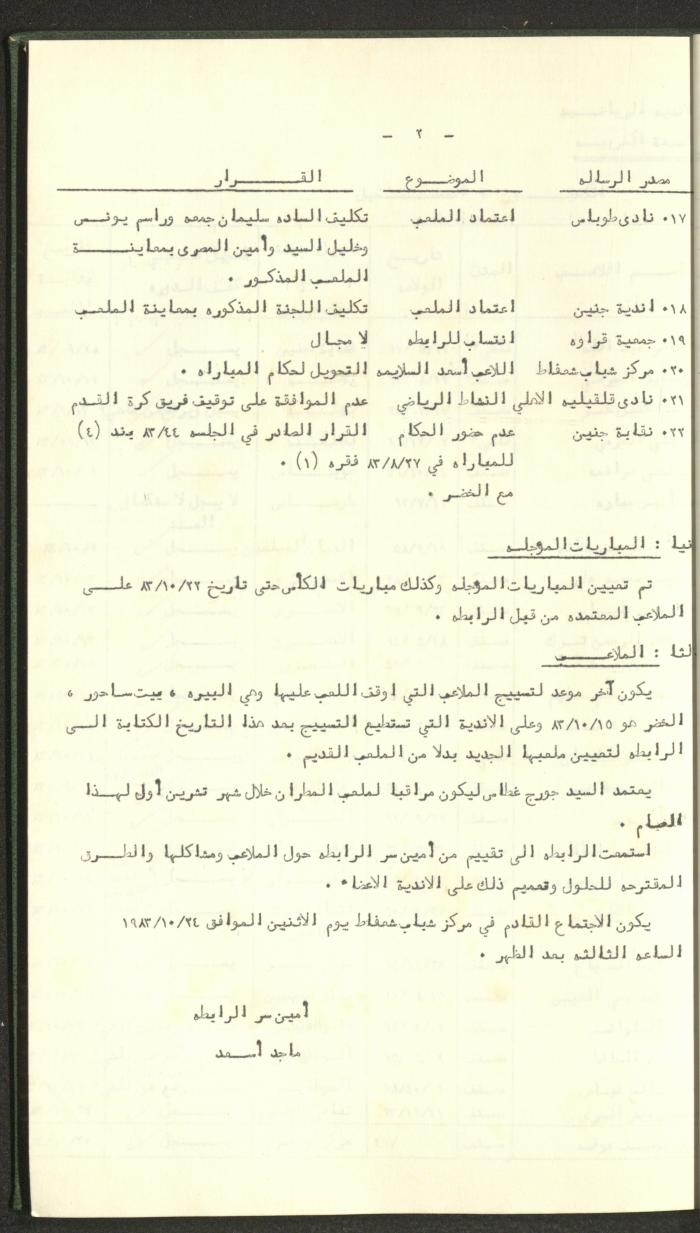 - ٢ -
مصدر الرساله الموضوع القرار
١٧. نادى طوباس اعتماد الملعب تكليف الساده سليمان جمعه وراسم يونس
وخليل السيد وأمين المصرى بمعاينة
الملعب المذكور .
١٨. اندية جنين اعتماد الملعب تكليف اللجنة المذكوره بمعاينة الملعب
١٩. جمعية قراوه انتساب للرابطه لا مجال
٢٠. مركز شباب شعفاط اللاعب أسعد السلايمه التحويل لحكام المباراه .
٢١. نادى قلقيليه الاهلي النشاط الرياضي عدم الموافقة على توقيف فريق كرة القدم
٢٢. نقابة جنين عدم حضور الحكام القرار الصادر في الجلسه ٨٣/٤٤ بند (٤)
للمباراه في ٨٣/٨/٢٧ فقره (١) .
مع الخضر .
نيا : المباريات المؤجله
تم تعيين المباريات المؤجله وكذلك مباريات الكأس حتى تاريخ ٨٣/١٠/٢٢ على
الملاعب المعتمده من قبل الرابطه .
لثا : الملاعب
يكون آخر موعد لتسييج الملاعب التي اوقف اللعب عليها وهي البيره ، بيت ساحور ،
الخضر هو ٨٣/١٠/١٥ وعلى الاندية التي تستطيع التسييج بعد هذا التاريخ الكتابة الى
الرابطه لتعيين ملعبها الجديد بدلا من الملعب القديم .
يعتمد السيد جورج غطاس ليكون مراقبا لملعب المطران خلال شهر تشرين أول لهذا
العام .
استمعت الرابطه الى تقييم من أمين سر الرابطه حول الملاعب ومشاكلها والطرق
المقترحه للحلول وتعميم ذلك على الاندية الاعضاء .
يكون الاجتماع القادم في مركز شباب شعفاط يوم الاثنين الموافق ١٩٨٣/١٠/٢٤
الساعه الثالثه بعد الظهر .
أمين سر الرابطه
ماجد أسعد